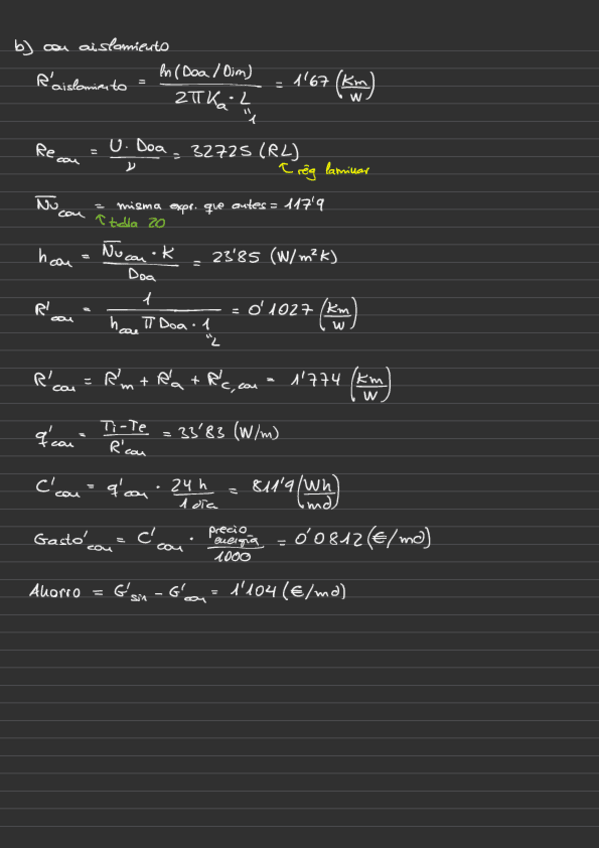 b) con aislamiento
R'aislamiento = ln(Doa/Dim) / 2πKa · L = 1'67 (Km/W)
"1
Re con = U · Doa / ν = 32725 (RL)
↑ rég laminar
Nu con = misma expr. que antes = 117'9
↑ tabla 20
h con = Nu con · K / Doa = 23'85 (W/m²K)
R'con = 1 / h con π Doa · 1 = 0'1027 (Km/W)
"L
R'con = R'm + R'a + R'c, con = 1'774 (Km/W)
q'con = Ti - Te / R'con = 33'83 (W/m)
C'con = q'con · 24 h / 1 día = 811'9 (Wh/md)
Gasto'con = C'con · precio energía / 1000 = 0'0812 (€/md)
Ahorro = G'sin - G'con = 1'104 (€/md)